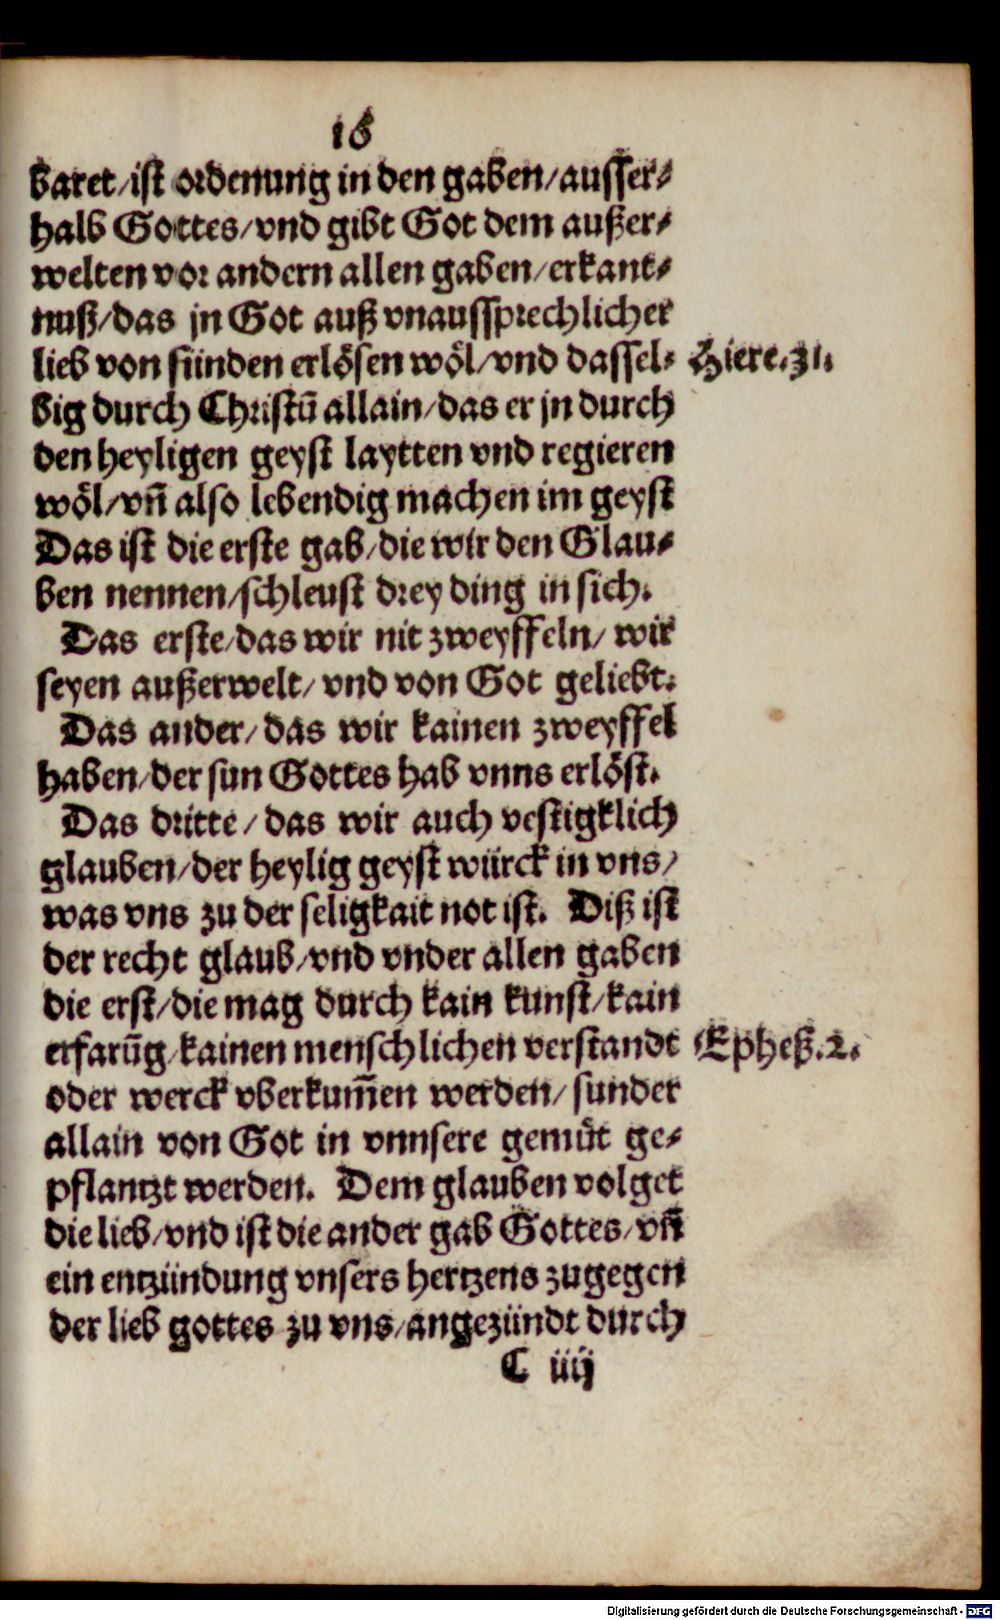 16
baret/ist ordenung in den gaben/ausser⸗
halb Gottes/vnd gibt Got dem außer⸗
welten vor andern allen gaben/erkant⸗
nuß/das jn Got auß vnaussprechlicher
lieb von sünden erlösen wöl/vnd dassel⸗ Hiere.31.
big durch Christū allain/das er jn durch
den heyligen geyst laytten vnd regieren
wöl/vñ also lebendig machen im geyst
Das ist die erste gab/die wir den Glau⸗
ben nennen/schleust drey ding in sich.
Das erste/das wir nit zweyffeln/wir
seyen außerwelt/vnd von Got geliebt.
Das ander/das wir kainen zweyffel
haben/der sun Gottes hab vnns erlöst.
Das dritte/das wir auch vestigklich
glauben/der heylig geyst würck in vns/
was vns zu der seligkait not ist. Diß ist
der recht glaub/vnd vnder allen gaben
die erst/die mag durch kain kunst/kain
erfarūg/kainen menschlichen verstandt Epheß.2.
oder werck vberkum̄en werden/sunder
allain von Got in vnnsere gemüt ge⸗
pflantzt werden. Dem glauben volget
die lieb/vnd ist die ander gab Gottes/vñ
ein entzündung vnsers hertzens zugegen
der lieb gottes zu vns/angezündt durch
C iiij
Digitalisierung gefördert durch die Deutsche Forschungsgemeinschaft - DFG